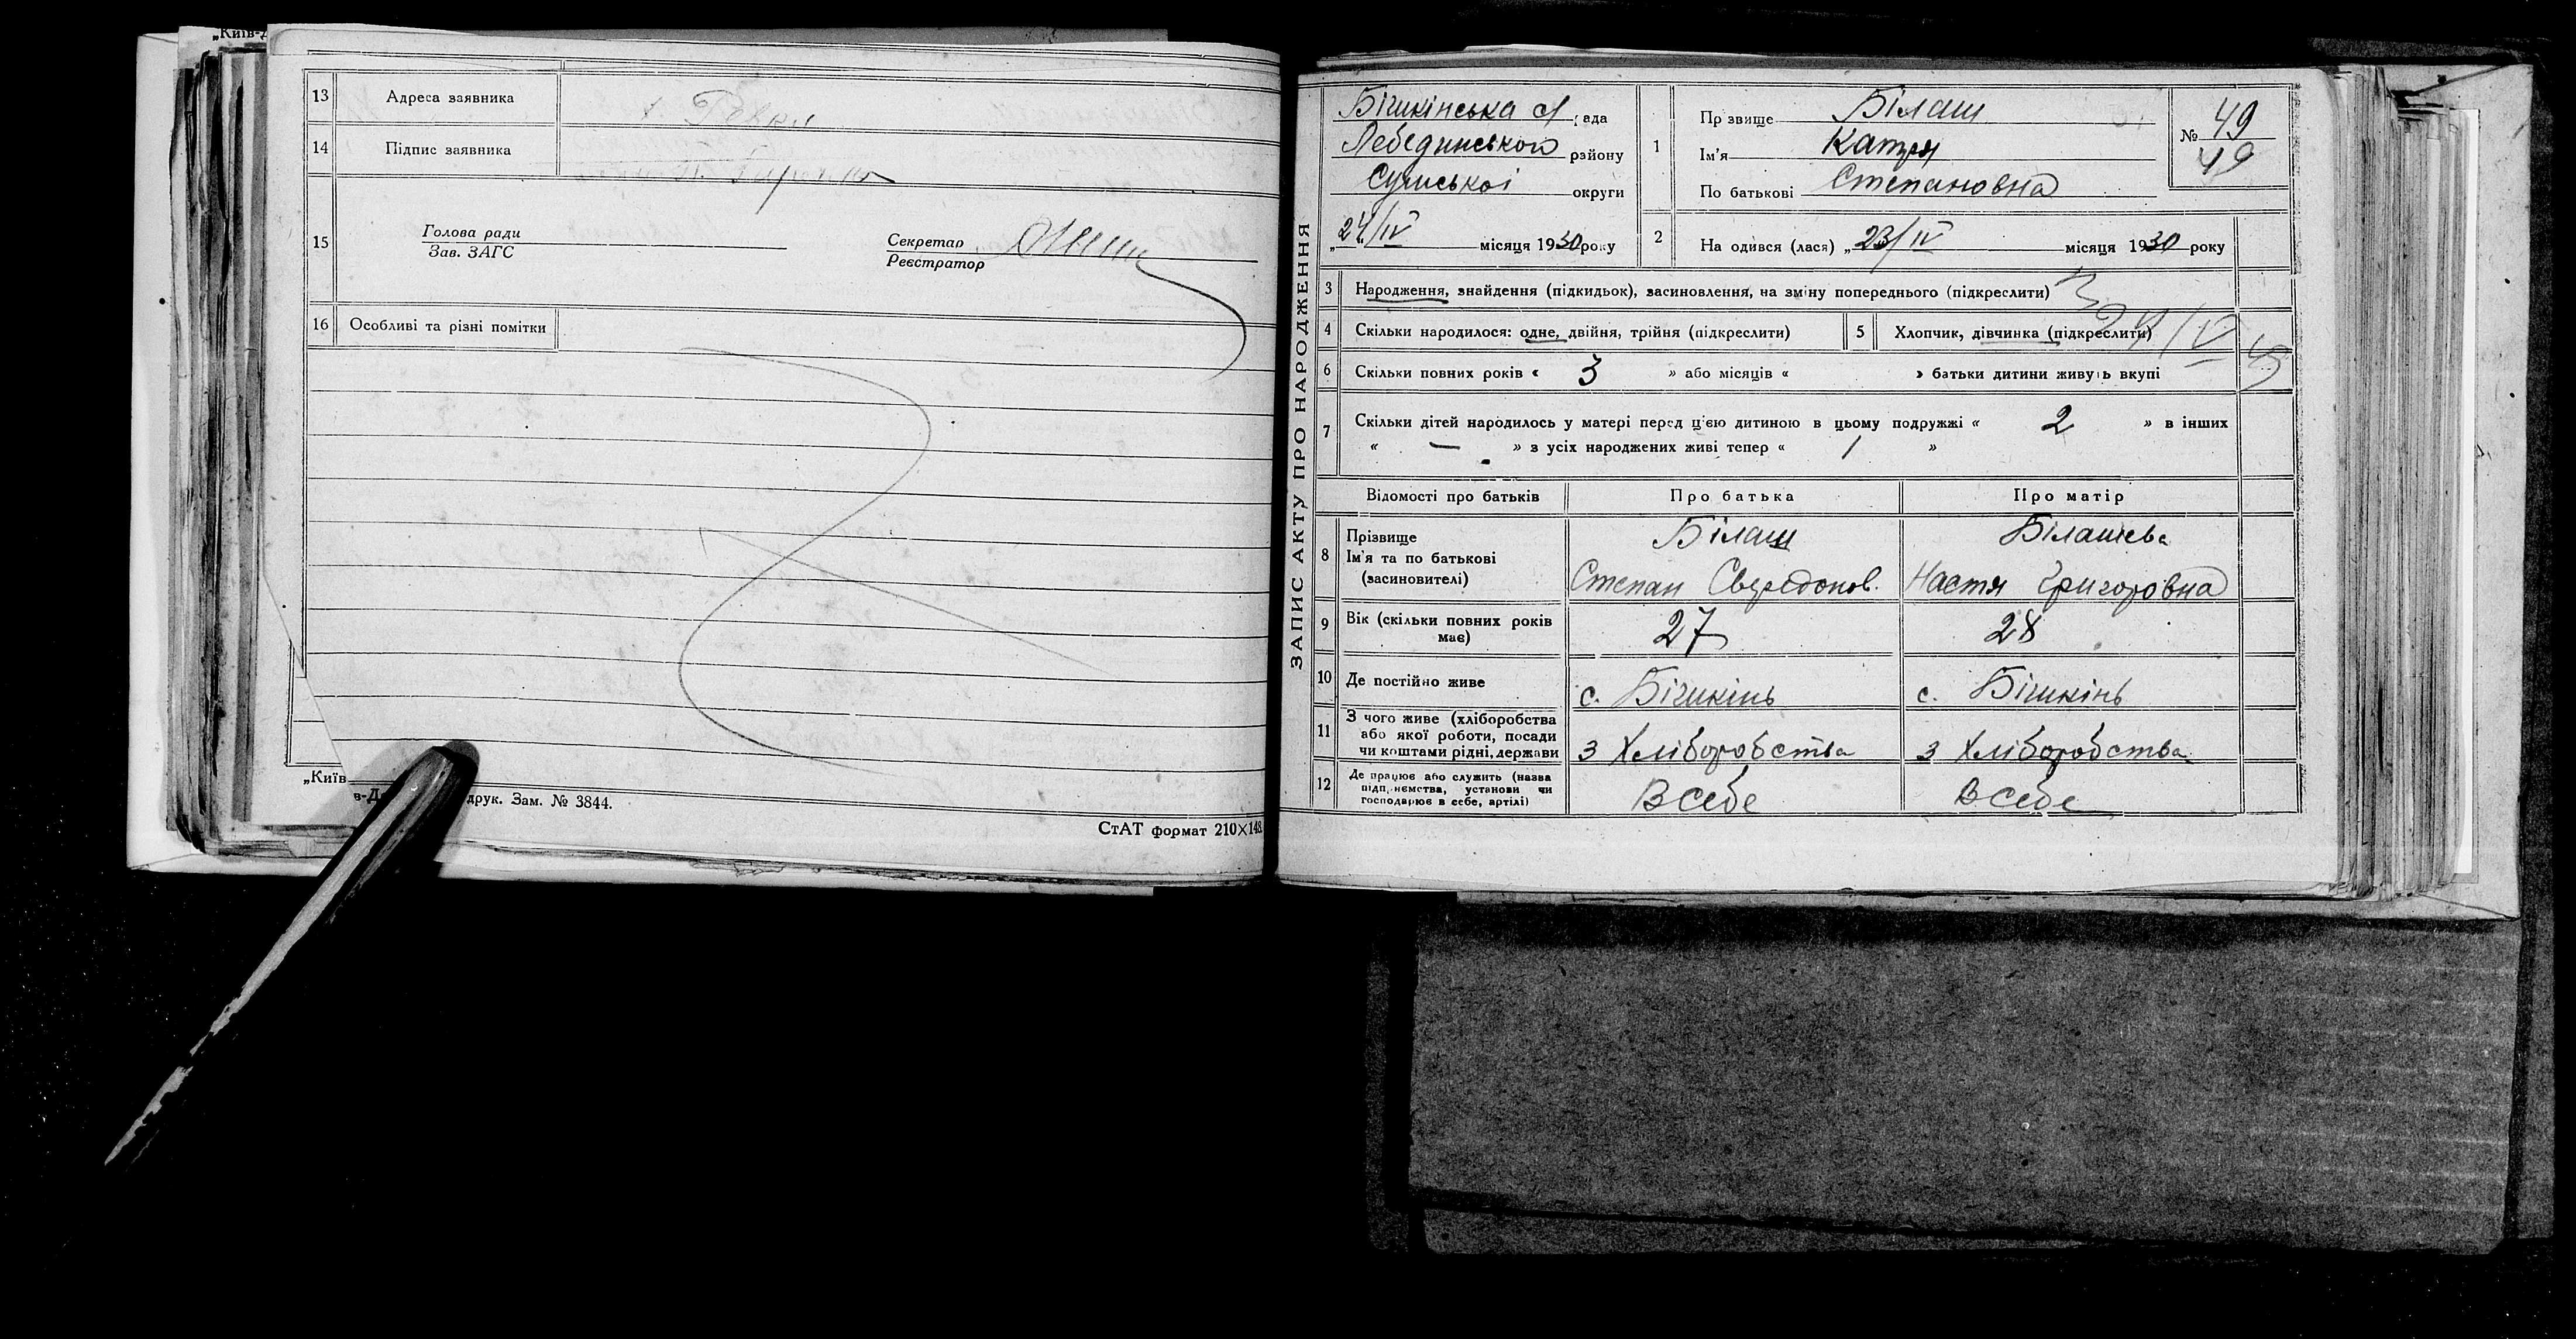 „Київ-Д
13 Адреса заявника
14 Підпис заявника
15 Голова ради
Зав. ЗАГС
Секретар
Реєстратор
16 Особливі та різні помітки
„Київ
в-Д друк. Зам. № 3844.
СтАТ формат 210×148
ЗАПИС АКТУ ПРО НАРОДЖЕННЯ
Бішкінська с/ рада
Лебединського району
Сумської округи
„24/IV місяця 1930 року
1 Прізвище Білаш
Ім'я Катря
По батькові Степановна
№ 49
49
2 На одився (лася) „23/IV місяця 1930 року
3 Народження, знайдення (підкидьок), засиновлення, на зміну попереднього (підкреслити)
4 Скільки народилося: одне, двійня, трійня (підкреслити)
5 Хлопчик, дівчинка (підкреслити)
6 Скільки повних років « 3 » або місяців « » батьки дитини живуть вкупі
7 Скільки дітей народилось у матері перед цією дитиною в цьому подружжі « 2 » в інших
« — » з усіх народжених живі тепер « 1 »
Відомості про батьків Про батька Про матір
8 Прізвище
Ім'я та по батькові
(засиновителі)
Білаш
Степан
Білашева
Настя Григоровна
9 Вік (скільки повних років має) 27 28
10 Де постійно живе с. Бішкінь с. Бішкінь
11 З чого живе (хліборобства
або якої роботи, посади
чи коштами рідні, держави
з Хліборобства з Хліборобства
12 Де працює або служить (назва
підприємства, установи чи
господарює в себе, артілі)
В себе В себе